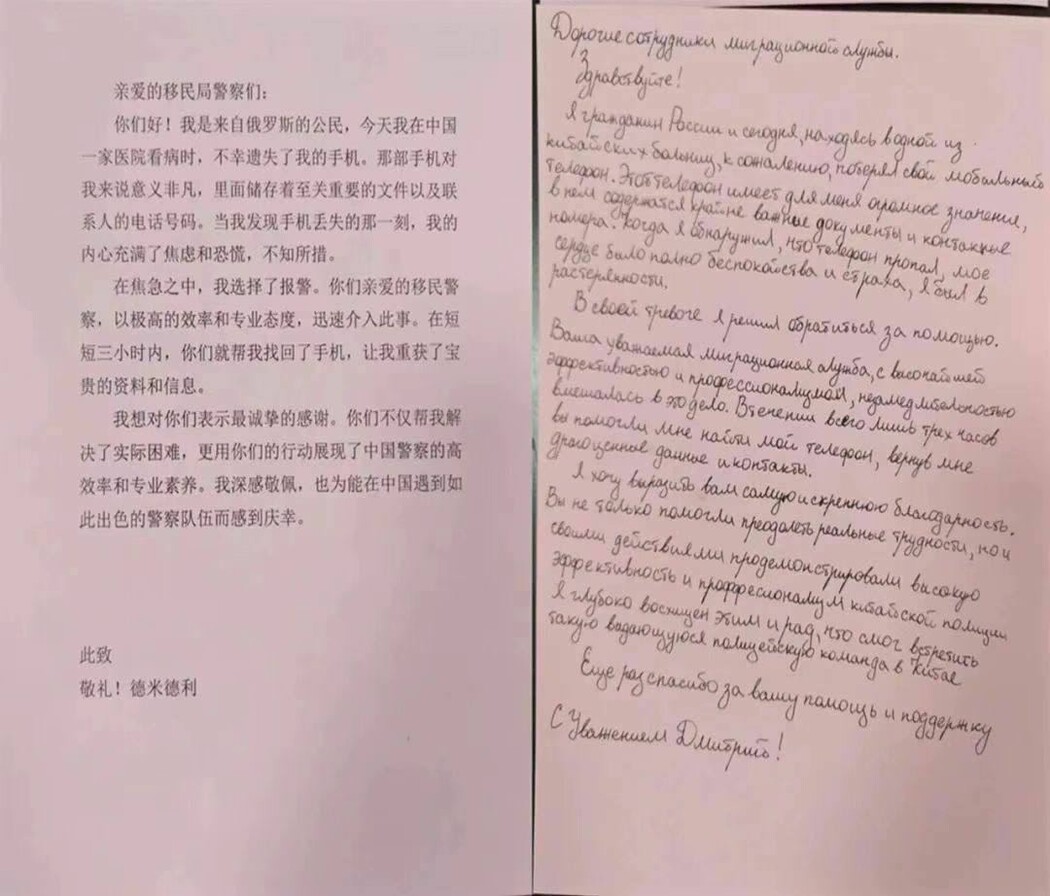 亲爱的移民局警察们:
你们好！我是来自俄罗斯的公民，今天我在中国
一家医院看病时，不幸遗失了我的手机。那部手机对
我来说意义非凡，里面储存着至关重要的文件以及联
系人的电话号码。当我发现手机丢失的那一刻，我的
内心充满了焦虑和恐慌，不知所措。
在焦急之中，我选择了报警。你们亲爱的移民警
察，以极高的效率和专业态度，迅速介入此事。在短
短三小时内，你们就帮我找回了手机，让我重获了宝
贵的资料和信息。
我想对你们表示最诚挚的感谢。你们不仅帮我解
决了实际困难，更用你们的行动展现了中国警察的高
效率和专业素养。我深感敬佩，也为能在中国遇到如
此出色的警察队伍而感到庆幸。
此致
敬礼！德米德利
Дорогие сотрудники миграционной службы.
Здравствуйте!
Я гражданин России и сегодня, находясь в одной из
китайских больниц, к сожалению, потерял свой мобильный
телефон. Этот телефон имеет для меня огромное значение,
в нем содержатся крайне важные документы и контакные
номера. Когда я обнаружил, что телефон пропал, мое
сердце было полно беспокойства и страха, я был в
растерянности.
В своей тревоге я решил обратиться за помощью.
Ваша уважаемая миграционная служба, с высочайшей
эффективностью и профессионализмом, незамедлительностью
вмешалась в это дело. В течении всего лишь трех часов
вы помогли мне найти мой телефон, вернув мне
драгоценные данные и контакты.
Я хочу выразить вам самую искреннюю благодарность.
Вы не только помогли преодолеть реальные трудности, но и
своими действиями продемонстрировали высокую
эффективность и проффесионализм китайской полиции
Я глубоко восхищен этим и рад, что смог встретить
такую выдающуюся полицейскую команда в Китае
Еще раз спасибо за вашу помощь и поддержку
С Уважением Дмитрий!